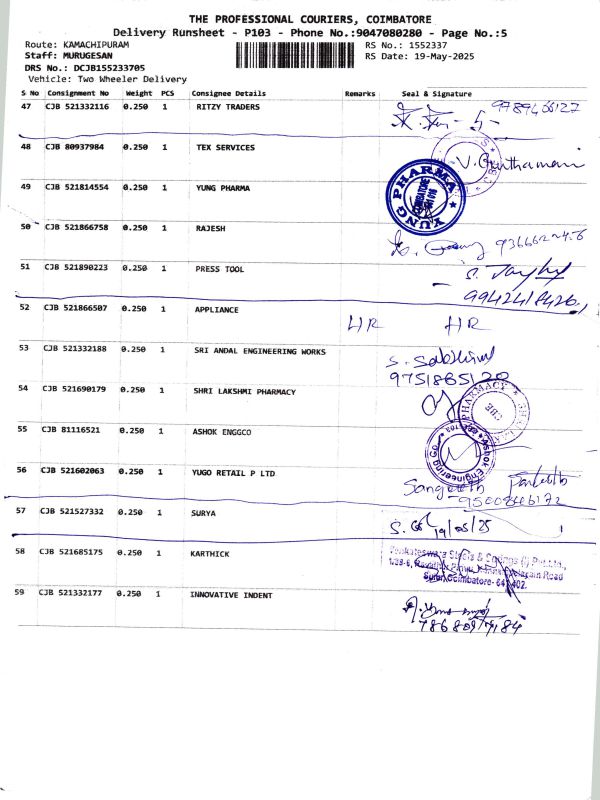 THE PROFESSIONAL COURIERS, COIMBATORE
Delivery Runsheet - P103 - Phone No.:9047080280 - Page No.:5
Route: KAMACHIPURAM RS No.: 1552337
Staff: MURUGESAN RS Date: 19-May-2025
DRS No.: DCJB155233705
Vehicle: Two Wheeler Delivery
S No Consignment No Weight PCS Consignee Details Remarks Seal & Signature
47 CJB 521332116 0.250 1 RITZY TRADERS
48 CJB 80937984 0.250 1 TEX SERVICES
49 CJB 521814554 0.250 1 YUNG PHARMA
YUNG PHARMA
COIMBATORE
50 CJB 521866758 0.250 1 RAJESH
51 CJB 521890223 0.250 1 PRESS TOOL
52 CJB 521866507 0.250 1 APPLIANCE
HR HR
53 CJB 521332188 0.250 1 SRI ANDAL ENGINEERING WORKS
9751865120
54 CJB 521690179 0.250 1 SHRI LAKSHMI PHARMACY
PHARMACY
CBE
55 CJB 81116521 0.250 1 ASHOK ENGGCO
Ashok Engineering Co
56 CJB 521602063 0.250 1 YUGO RETAIL P LTD
Sangeeth
57 CJB 521527332 0.250 1 SURYA
19/05/25
58 CJB 521685175 0.250 1 KARTHICK
Venkateswara Steels & Springs (I) Pvt Ltd.,
Sulur, Coimbatore- 641 402.
59 CJB 521332177 0.250 1 INNOVATIVE INDENT